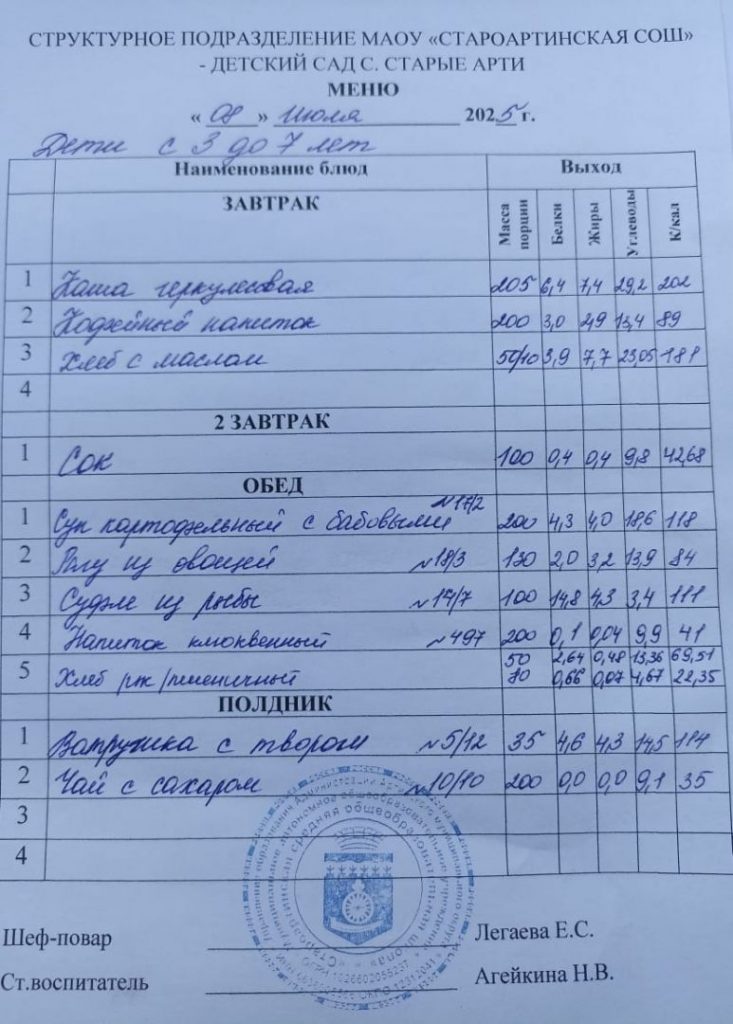 СТРУКТУРНОЕ ПОДРАЗДЕЛЕНИЕ МАОУ «СТАРОАРТИНСКАЯ СОШ»
- ДЕТСКИЙ САД С. СТАРЫЕ АРТИ
МЕНЮ
« 08 » Июля 2025 г.
Дети с 3 до 7 лет
Наименование блюд Выход
ЗАВТРАК Масса порции Белки Жиры Углеводы К/кал
1 Каша геркулесовая 205 6,4 7,4 29,2 202
2 Кофейный напиток 200 3,0 2,9 13,4 89
3 Хлеб с маслом 50/10 3,9 7,7 23,05 181
4
2 ЗАВТРАК
1 Сок 100 0,4 0,4 9,8 42,68
ОБЕД
1 Суп картофельный с бабовыми №17/2 200 4,3 4,0 18,6 118
2 Рагу из овощей №18/3 130 2,0 3,2 13,9 84
3 Суфле из рыбы 100 14,8 4,3 3,4 111
4 Напиток клюквенный №497 200 0,1 0,04 9,9 41
50 2,64 0,48 13,36 69,51
5 Хлеб рж/пшеничный 0,66 0,07 4,67 22,35
ПОЛДНИК
1 Ватрушка с творогом №5/12 35 4,6 4,3 14,5 114
2 Чай с сахаром №10/10 200 0,0 0,0 9,1 35
3
4
Шеф-повар Легаева Е.С.
Ст.воспитатель Агейкина Н.В.